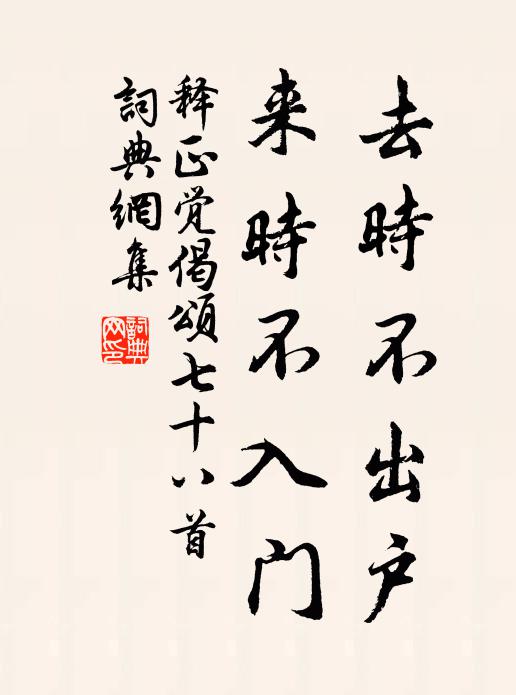 去時不出户
来時不入门
释正觉偈颂七十八首
詞典網集
詞典
网印